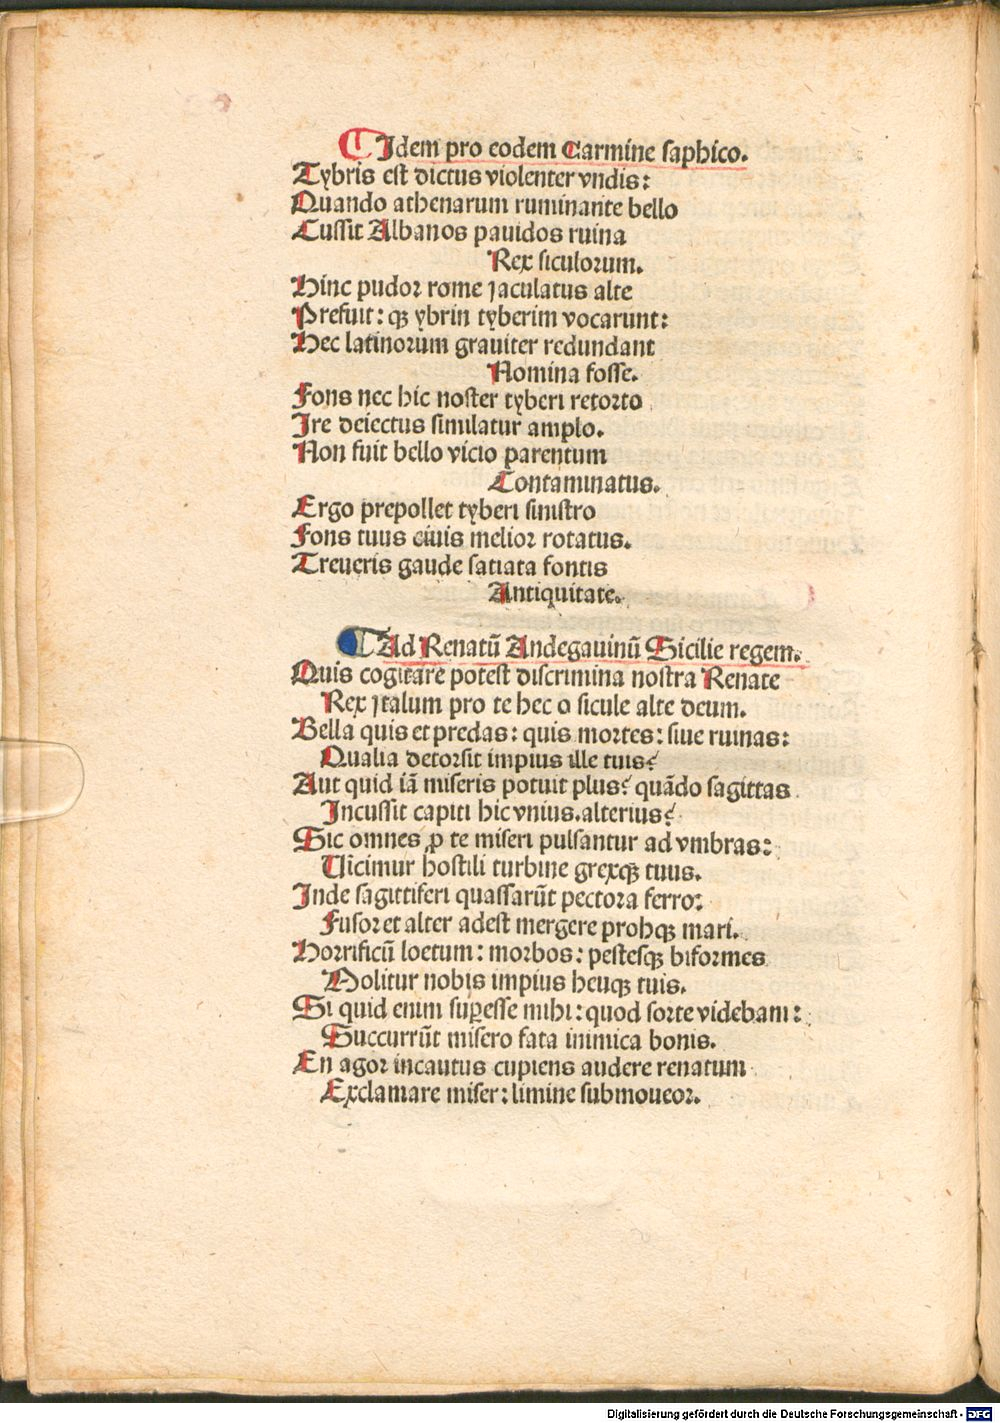 Idem pro eodem Carmine saphico.
Tybris est dictus violenter vndis:
Quando athenarum ruminante bello
Cussit Albanos pauidos ruina
Rex siculorum.
Hinc pudor rome iaculatus alte
Prefuit: qꝫ ybrin tyberim vocarunt:
Hec latinorum grauiter redundant
Nomina fosse.
Fons nec hic noster tyberi retorto
Ire deiectus similatur amplo.
Non fuit bello vicio parentum
Contaminatus.
Ergo prepollet tyberi sinistro
Fons tuus ciuis melior rotatus.
Treueris gaude satiata fontis
Antiquitate.
Ad Renatū Andegauinū Sicilie regem.
Quis cogitare potest discrimina nostra Renate
Rex italum pro te hec o sicule alte deum.
Bella quis et predas: quis mortes: siue ruinas:
Qualia detorsit impius ille tuis?
Aut quid iā miseris potuit plus? quādo sagittas
Incussit capiti hic vnius.alterius?
Sic omnes ꝓ te miseri pulsantur ad vmbras:
Uīcimur hostili turbine grexqꝫ tuus.
Inde sagittiferi quassarūt pectora ferro:
Fusor et alter adest mergere prohqꝫ mari.
Horrificū loetum: morbos: pestesqꝫ biformes
Molitur nobis impius heuqꝫ tuis.
Si quid enim suꝑesse mihi: quod sorte videbam:
Succurrūt misero fata inimica bonis.
En agor incautus cupiens audere renatum
Exclamare miser: limine submoueor.
Digitalisierung gefördert durch die Deutsche Forschungsgemeinschaft - DFG